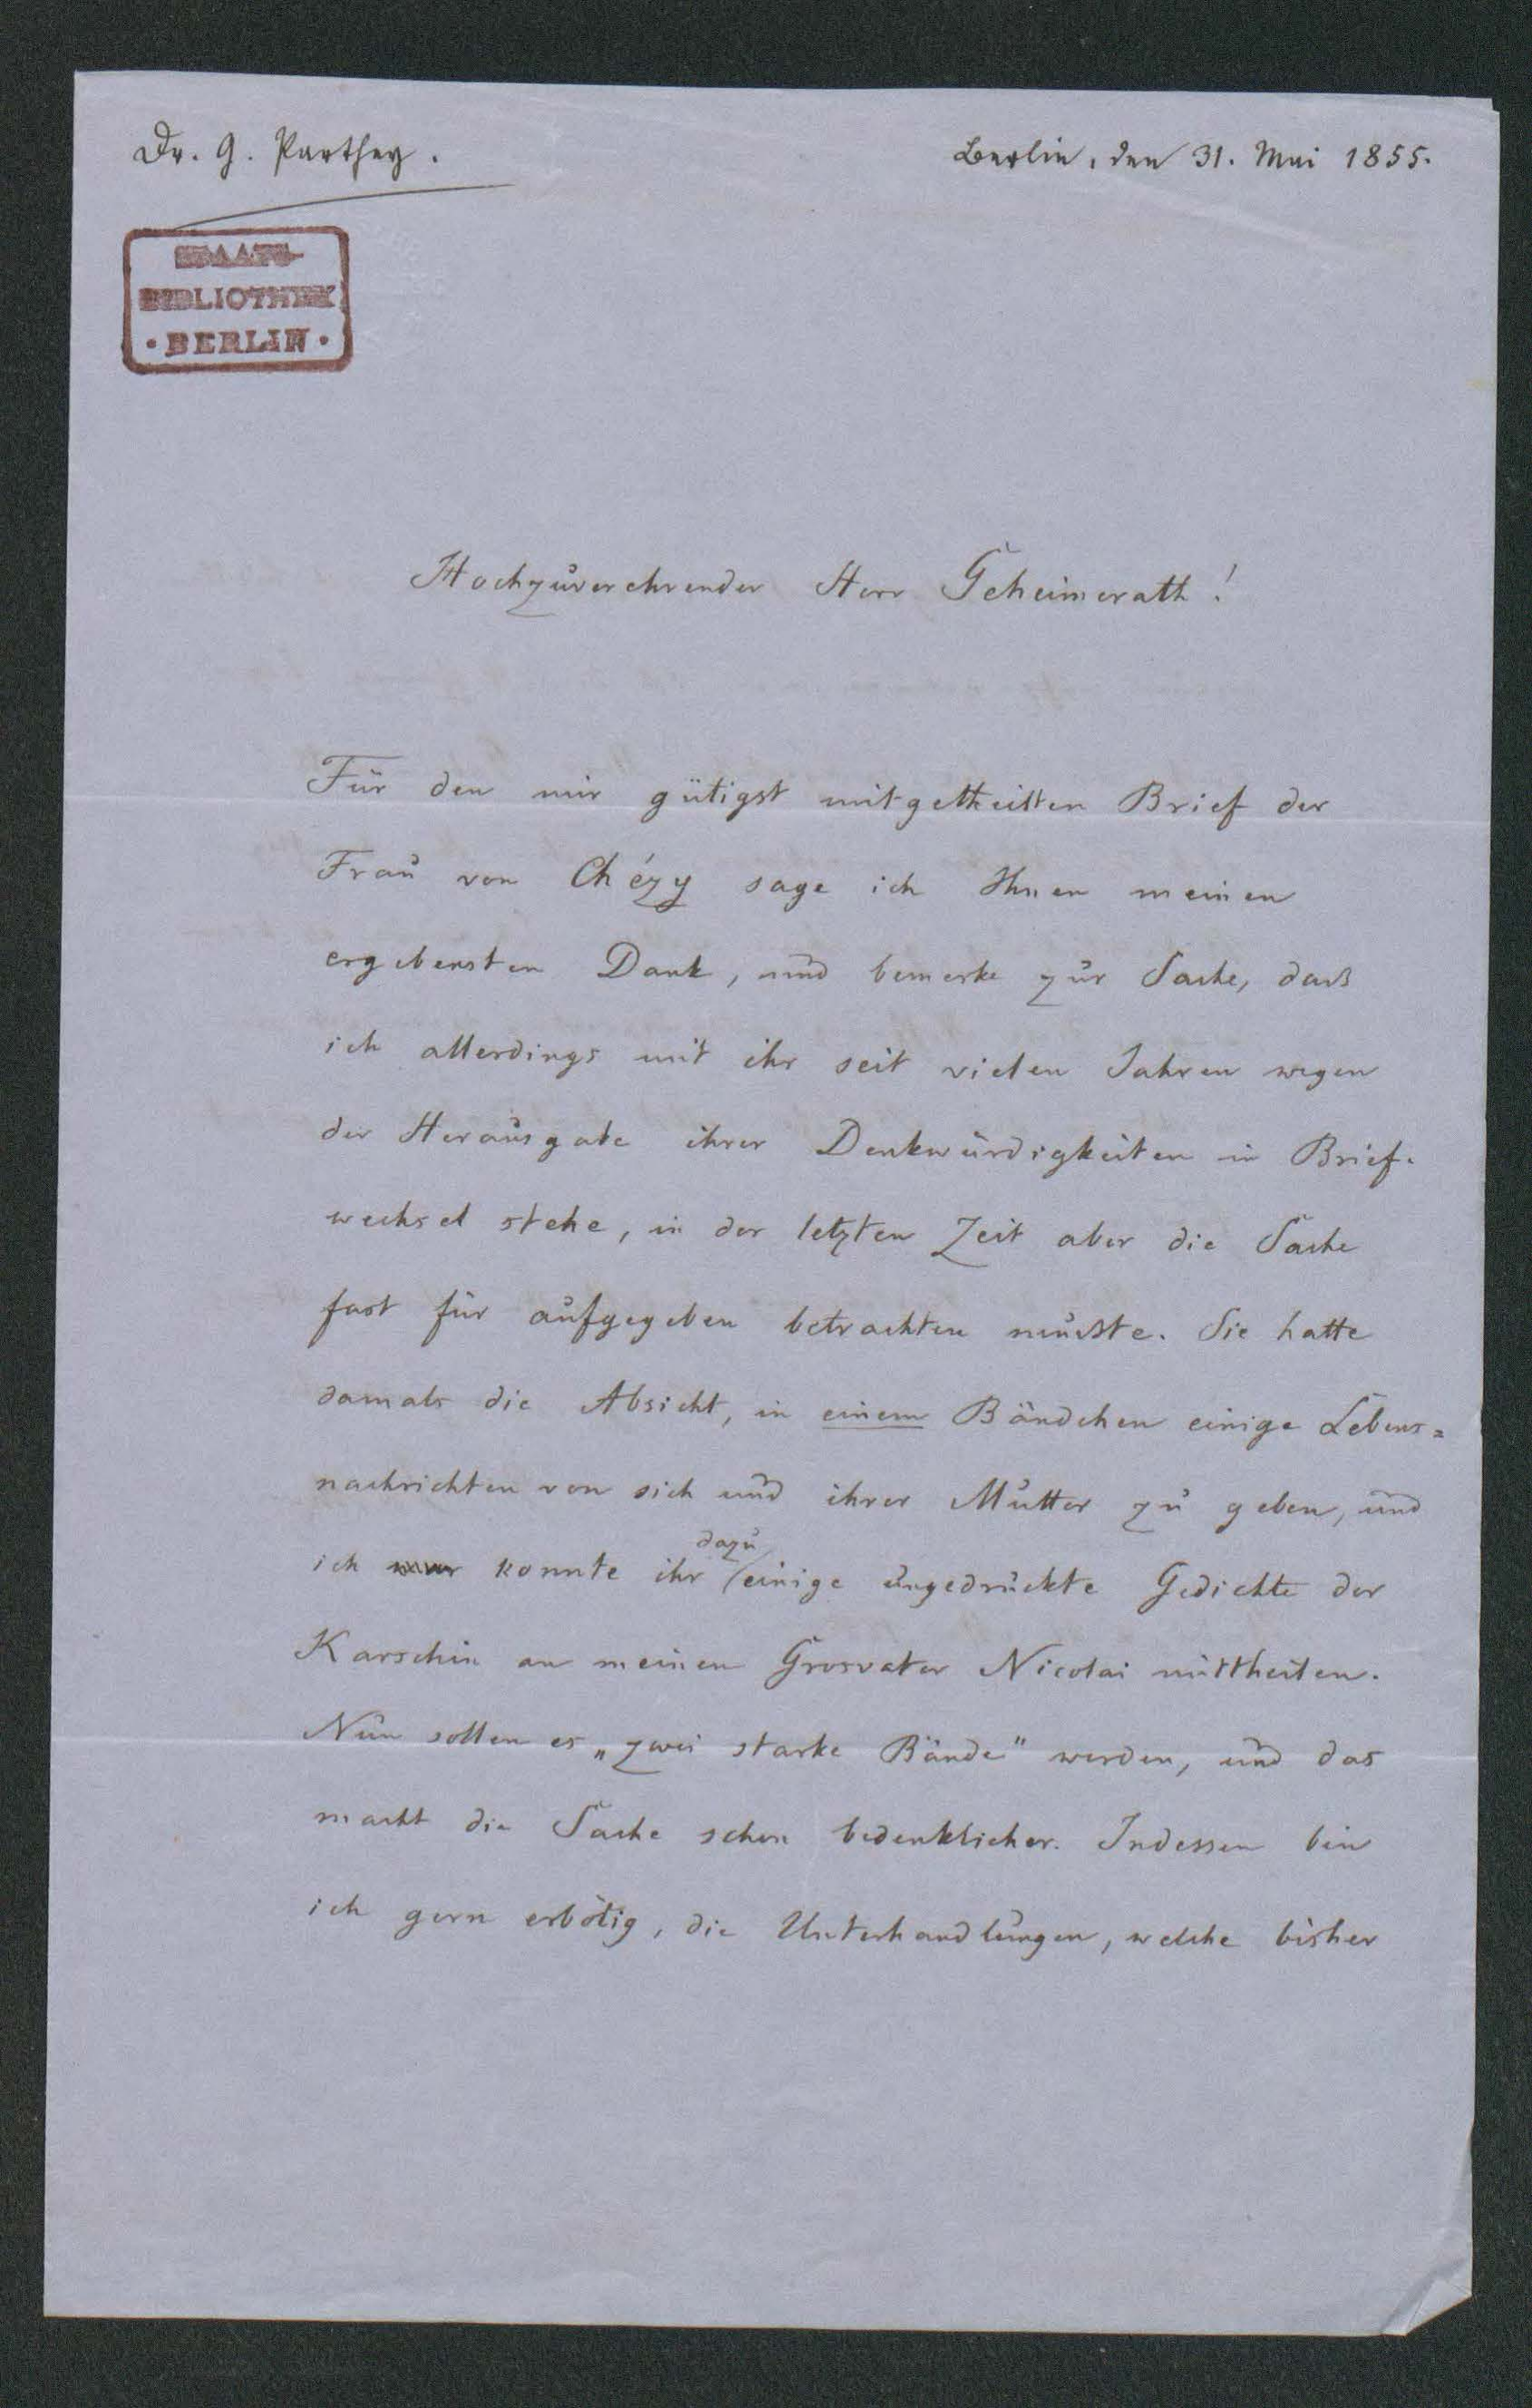 Dr. G. Parthey.
Berlin, den 31. Mai 1855.
STAATS-
BIBLIOTHEK
· BERLIN ·
Hochzuverehrender Herr Geheimerath!
Für den mir gütigst mitgetheilten Brief der
Frau von Chézy sage ich Ihnen meinen
ergebensten Dank, und bemerke zur Sache, daß
ich allerdings mit ihr seit vielen Jahren wegen
der Herausgabe ihrer Denkwürdigkeiten in Brief-
wechsel stehe, in der letzten Zeit aber die Sache
fast für aufgegeben betrachten mußte. Sie hatte
damals die Absicht, in einem Bändchen einige Lebens=
nachrichten von sich und ihrer Mutter zu geben, und
dazu
ich konnte ihr einige ungedruckte Gedichte der
Karschin an meinen Grosvater Nicolai mittheilen.
Nun sollen es „zwei starke Bände" werden, und das
macht die Sache schon bedenklicher. Indessen bin
ich gern erbötig, die Unterhandlungen, welche bisher